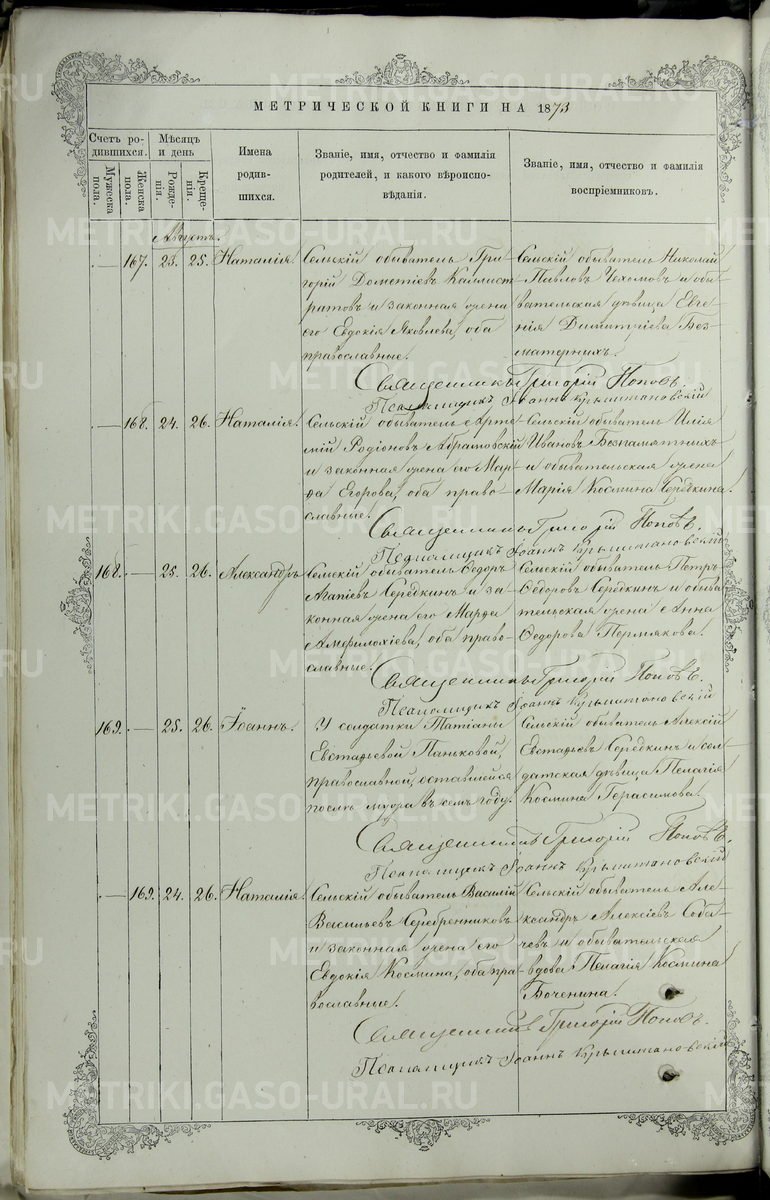 МЕТРИЧЕСКОЙ КНИГИ НА 1873
Счетъ родившихся.
Мужеска пола.
Женска пола.
Мѣсяцъ и день
Рожденія.
Крещенія.
Имена родившихся.
Званіе, имя, отчество и фамилія родителей, и какого вѣроисповѣданія.
Званіе, имя, отчество и фамилія воспріемниковъ.
Августъ.
— 167. 23. 25. Наталія.
Сельскій обыватель Гри-
горій Дометіевъ Каллист-
ратовъ и законная жена
его Евдокія Яковлева, оба
православные.
Сельскій обыватель Николай
Павловъ Чехомовъ и обы-
вательская дѣвица Евге-
нія Димитріева Без-
матерныхъ.
Священникъ Григорій Поповъ.
Псаломщикъ Іоаннъ
— 168. 24. 26. Наталія.
Сельскій обыватель Арте-
мій Родіоновъ Абрамовскій
и законная жена его Мар-
ѳа Егорова, оба право-
славные.
Сельскій обыватель Илія
Ивановъ Безпамятныхъ
и обывательская жена
Марія Космина Середкина.
Священникъ Григорій Поповъ.
Псаломщикъ Іоаннъ
168. — 25. 26. Александръ
Сельскій обыватель Ѳедоръ
Агапіевъ Середкинъ и за-
конная жена его Марѳа
Амфилохіева, оба право-
славные.
Сельскій обыватель Петръ
Ѳедоровъ Середкинъ и обыва-
тельская жена Анна
Ѳедорова Пермякова.
Священникъ Григорій Поповъ.
Псаломщикъ Іоаннъ
169. — 25. 26. Іоаннъ.
У солдатки Татіаны
Евстафьевой Паньковой,
православной, оставшейся
послѣ мужа въ семъ году.
Сельскій обыватель Алексій
Евстафьевъ Середкинъ и сол-
датская дѣвица Пелагія
Космина Герасимова.
Священникъ Григорій Поповъ.
Псаломщикъ Іоаннъ
— 169. 24. 26. Наталія.
Сельскій обыватель Василій
Васильевъ Серебренниковъ
и законная жена его
Евдокія Космина, оба пра-
вославные.
Сельскій обыватель Але-
ксандръ Алексіевъ Соба-
чевъ и обывательская
вдова Пелагія Космина
Боченина.
Священникъ Григорій Поповъ.
Псаломщикъ Іоаннъ
METRIKI.GASO-URAL.RU